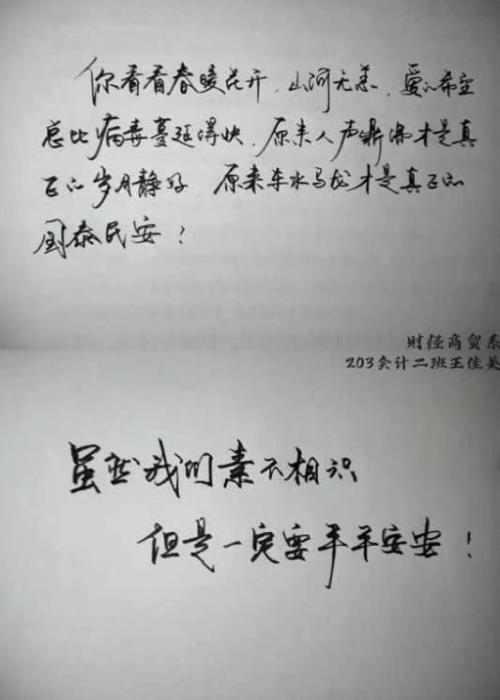 你看看春暖花开,山河无恙,爱的希望
总比病毒蔓延得快,原来人声鼎沸才是真
正的岁月静好 原来车水马龙才是真正的
国泰民安?
财经商贸系
203会计二班王佳美
虽然我们素不相识
但是一定要平平安安!